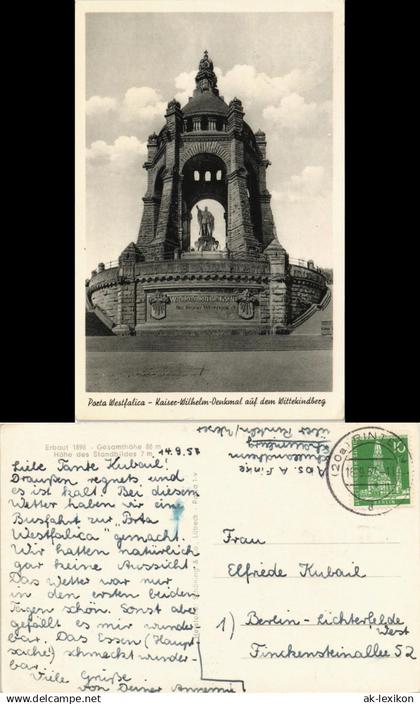 Porta Westfalica - Kaiser-Wilhelm-Denkmal auf dem Wittekindberg
Erbaut 1896 - Gesamthöhe 88 m
Höhe des Standbildes 7 m
14.9.57
Liebe Tante Kubail!
Draußen regnets und
es ist kalt. Bei diesem
Wetter haben wir eine
Busfahrt zur "Porta
Westfalica" gemacht.
Wir hatten natürlich
gar keine Aussicht.
Das Wetter war nur
in den ersten beiden
Tagen schön. Sonst aber
gefällt es mir wunder-
bar. Das Essen (Haupt-
sache!) schmeckt wunder-
bar.
Viele Grüße
von Deiner Annemie
Abs. A. Finke
über Rinteln/Weser
(20a) RINT
10
BERLIN
Frau
Elfriede Kubail
1) Berlin-Lichterfelde
West
Finckensteinallee 52
ak-lexikon.de
ak-lexikon.de